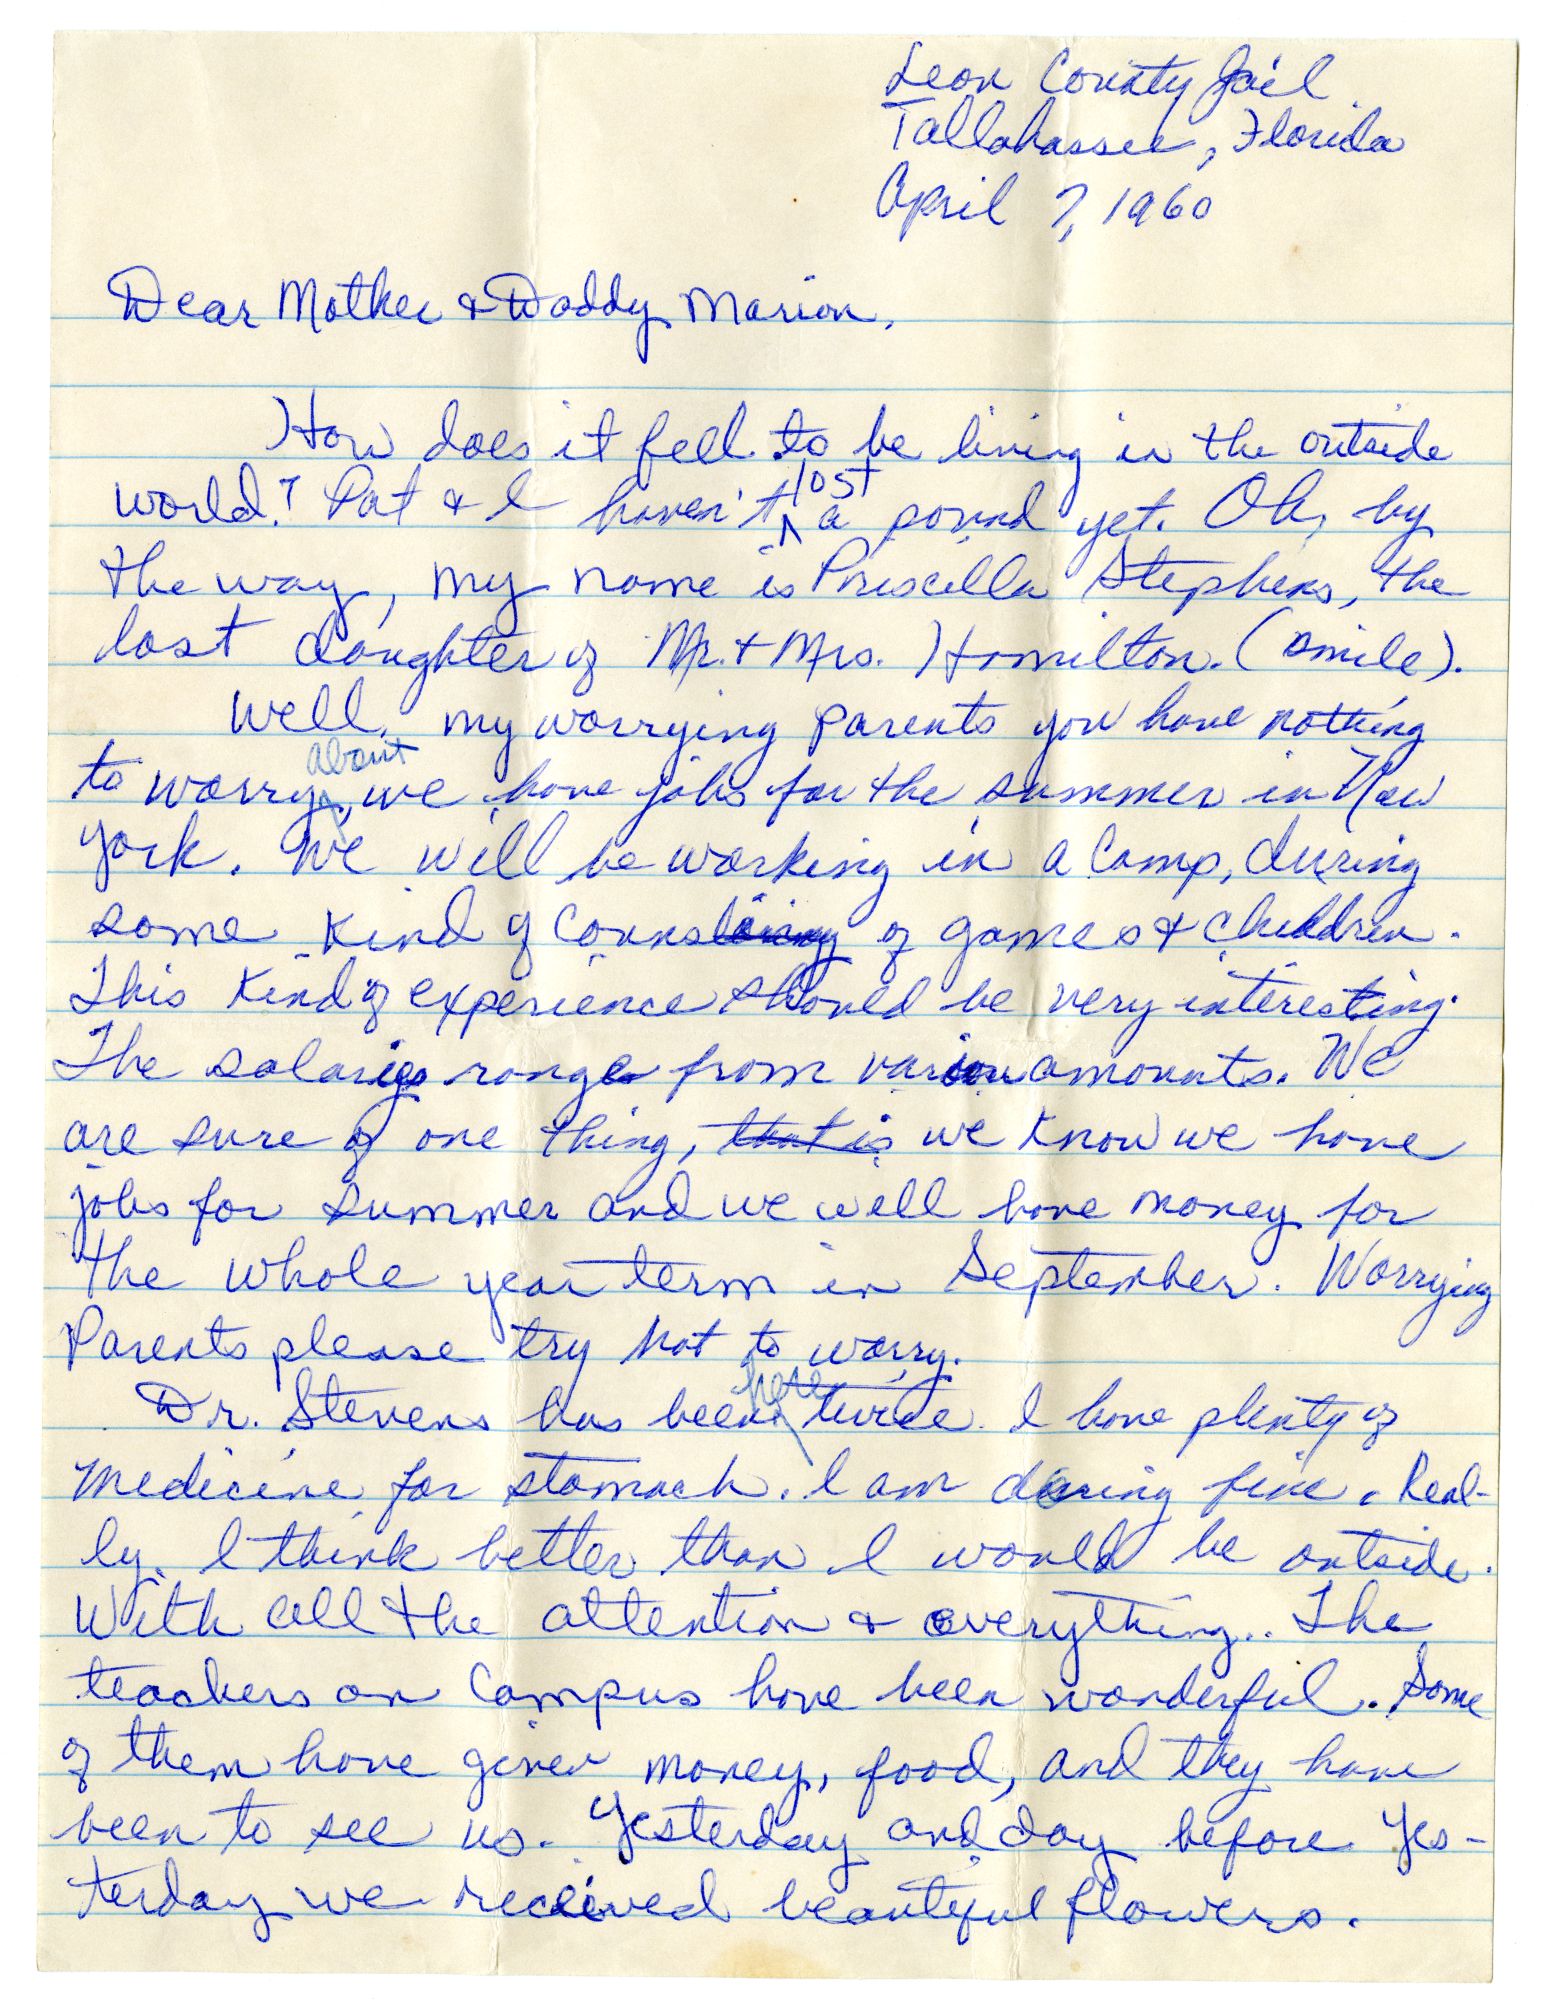 Leon County Jail
Tallahassee, Florida
April 7, 1960
Dear Mother & Daddy Marion,
How does it fell to be living in the outside
world? Pat & I haven't lost a pound yet. Oh, by
the way, my name is Priscilla Stephens, the
lost daughter of Mr. & Mrs. Hamilton. (smile).
Well, my worrying parents you have nothing
to worry about, we have jobs for the summer in New
York. We will be working in a Camp, during
some kind of Counsling of games & children.
This kind of experience should be very interesting.
The salaries range from various amounts. We
are sure of one thing, that is we know we have
jobs for summer and we will have money for
the whole year term in September. Worrying
Parents please try not to worry.
Dr. Stevens has been here twice. I have plenty of
medicine for stomach. I am doing fine. Real-
ly. I think better than I would be outside.
With all the attention & everything.. The
teachers on Campus have been wonderful. Some
of them have given money, food, and they have
been to see us. Yesterday and day before Yes-
terday we received beautiful flowers.